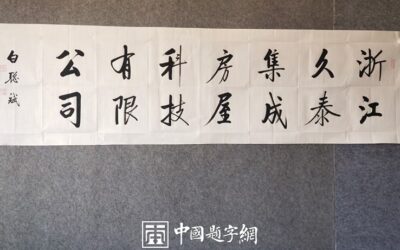 浙江
久泰
集成
房屋
科技
有限
公司
白聪斌
中國题字網